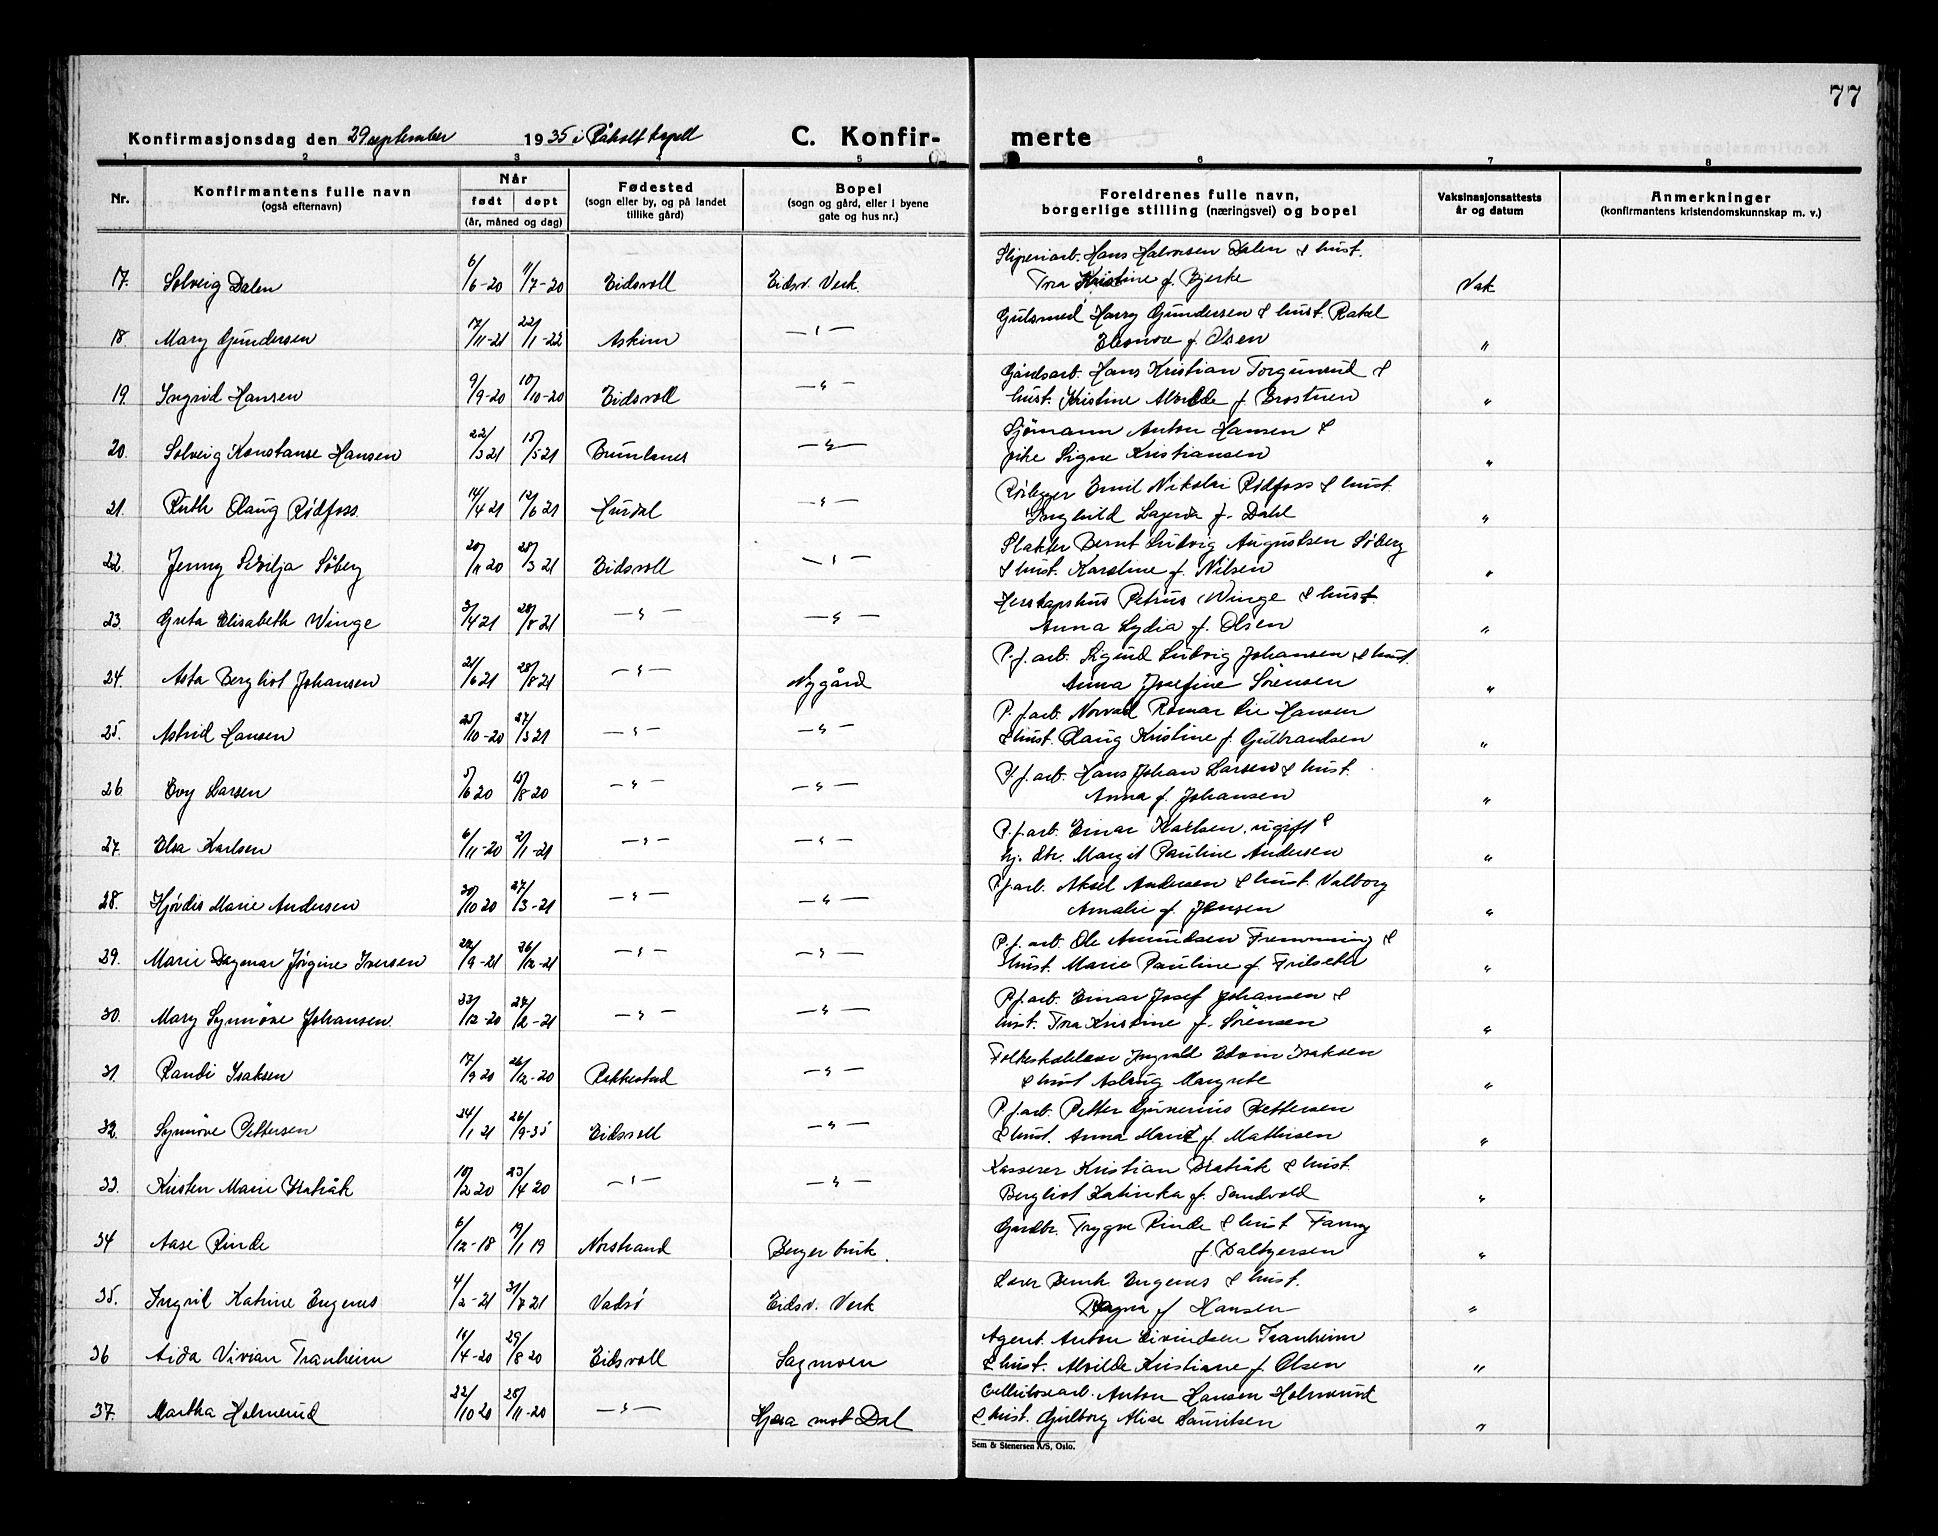 77
Konfirmasjonsdag den 29 september 1935 i Råholt kapell C. Konfir- merte
1 2 3 4 5 6 7 8
Nr. Konfirmantens fulle navn (også efternavn) Når født døpt (år, måned og dag) Fødested (sogn eller by, og på landet tillike gård) Bopel (sogn og gård, eller i byene gate og hus nr.) Foreldrenes fulle navn, borgerlige stilling (næringsvei) og bopel Vaksinasjonsattests år og datum Anmerkninger (konfirmantens kristendomskunnskap m. v.)
Sliperiarb. Hans Halvorsen Dalen & hust.
17. Solveig Dalen 6/6-20 11/7-20 Eidsvoll Eidsv. Verk. Tora Kristine f. Bjerke Vak
Gulsmed Harry Gundersen & hust. Rakel
18. Mary Gundersen 17/11-21 22/1-22 Askim — " — Eleonore f. Olsen "
Gårdsarb. Hans Kristian Torgunrud &
19. Ingrid Hansen 9/9-20 10/10-20 Eidsvoll — " — hust. Kristine Alvilde f. Brostuen "
Sjømann Anton Hansen &
20. Solveig Konstanse Hansen 22/3 21 15/5 21 Brunlanes — " — pike Signe Kristiansen "
Rørlegger Emil Nikolai Rødfoss & hust.
21. Ruth Olaug Rødfoss. 14/4 21 12/6 21 Hurdal — " — Inghild Lagerda f. Dahl "
Slakter Bernt Ludvig Augustsen Søberg
22. Jenny Sevilja Søberg 20/11 20 28/3 21 Eidsvoll — " — & hust. Karoline f. Nilsen "
Petrus Winge & hust.
23. Greta Elisabeth Winge 3/4 21 28/8 21 — " — — " — Anna Lydia f. Olsen "
P. f. arb. Sigurd Ludvig Johansen & hust.
24. Asta Bergliot Johansen 21/6 21 28/8 21 — " — Nygård Anna Josefine Sørensen "
P. f. arb. Norvald Ragnar Lie Hansen
25. Astrid Hansen 25/10-20 27/3 21 — " — — " — & hust. Olaug Kristine f. Gulbrandsen "
P. f. arb. Hans Johan Larsen & hust.
26. Evy Larsen 5/6 20 15/8 20 — " — — " — Anna f. Johansen "
P. f. arb. Einar Karlsen, ugift &
27. Elsa Karlsen 6/11-20 2/1-21 — " — — " — hj. dtr. Margit Pauline Andersen "
P. f. arb. Aksel Andersen & hust. Valborg
28. Hjørdis Marie Andersen 30/10 20 27/3-21 — " — — " — Amalie f. Jensen "
P. f. arb. Ole Amundsen Fremming &
29. Marie Dagmar Jørgine Iversen 22/9-21 26/12-21 — " — — " — hust. Marie Pauline f. Frilseth "
P. f. arb. Einar Josef Johansen &
30. Mary Synnøve Johansen. 23/12-20 27/2-21 — " — — " — hust. Tora Kristine f. Sørensen "
Folkeskolelærer Ingvald Edvin Isaksen
31. Randi Isaksen 17/9 20 26/12-20 Rakkestad — " — & hust Aslaug Margrete "
P. f. arb. Petter Gunerius Pettersen
32. Synnøve Pettersen 24/1 21 26/9-35 Eidsvoll — " — & hust. Anna Marie f. Mathisen "
Kasserer Kristian Statråk & hust.
33. Kirsten Marie Statråk 10/2 20 23/4 20 — " — — " — Bergliot Katinka f. Sandvold "
Gårdbr. Trygve Rinde & hust Fanny
34 Aase Rinde 6/12-18 19/1 19 Nordstrand Berger bruk. f. Dalbyersen "
Lærer Bernh. Engenes & hust.
35. Ingrid Katrine Engenes 4/2-21 31/7 21 Vadsø Eidsv. Verk Ragna f. Hansen "
Agent. Anton Eivindsen Tranheim
36 Aida Vivian Tranheim 14/4-20 29/8 20 Eidsvoll Sagmoen & hust. Alvilde Kristiane f. Olsen "
Cellulosearb. Anton Hansen Holmerud
37. Martha Holmerud 22/10 20 28/11-20 — " — Hjera mot Dal & hust. Gjulborg Alise Lauritsen "
Sem & Stenersen A/S, Oslo.